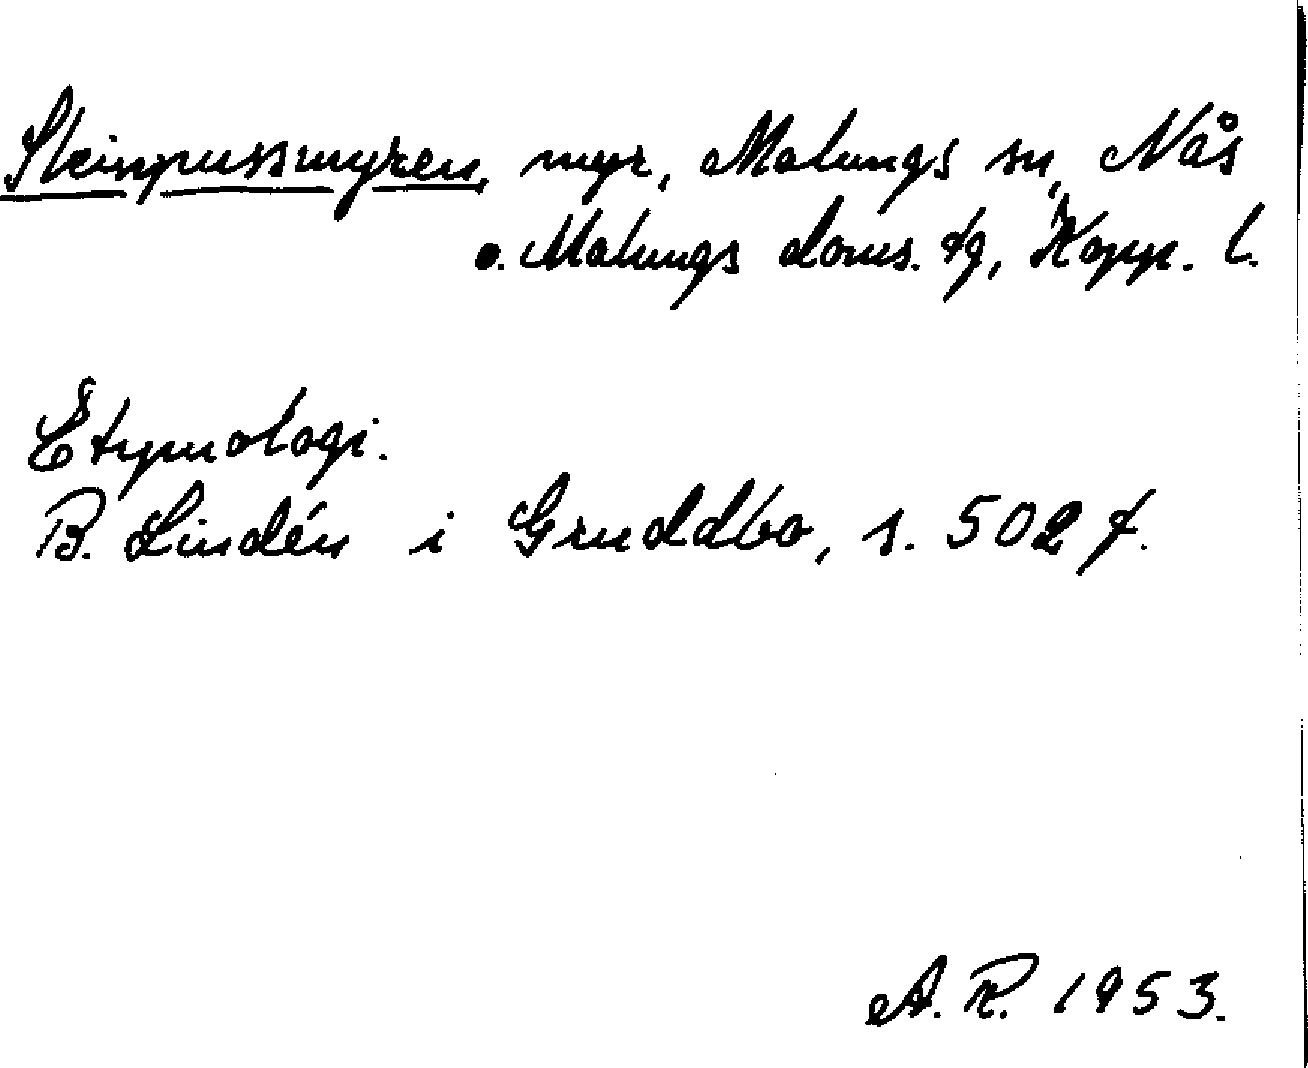 Steinpussmyren, myr, Malungs sn, Nås
o. Malungs doms. tg, Kopp. l.
Etymologi.
B. Lindén i Gruddbo, s. 502 f.
A. R. 1953.